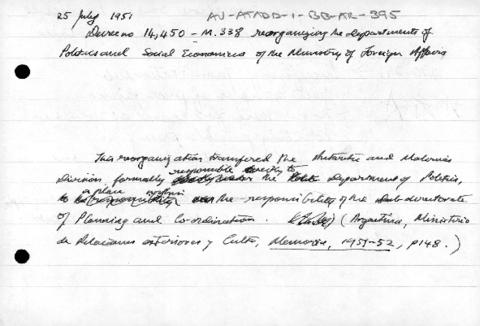 25 July 1951 AU-ATADD-1-BB-AR-395
Decree no 14,450 - M.338 reorganizing the departments of
Politics and Social Economics of the Ministry of Foreign Affairs
This reorganization transferred the Antarctic and Malvinas
responsible directly to
Division, formally under the Department of Politics,
a place within
to the responsibility of the Subdirectorate
of Planning and Co-ordination. (Argentina, Ministerio
de Relaciones exteriores y Culto, Memoria, 1951-52, p148.)